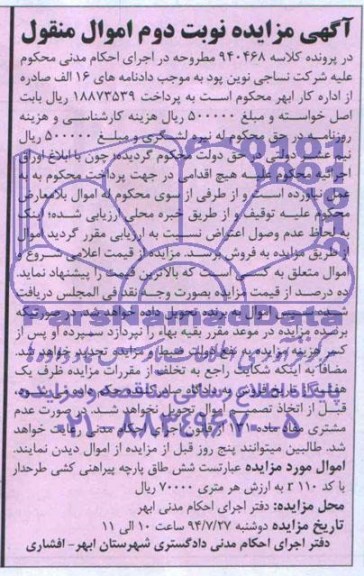 آگهی مزایده نوبت دوم اموال منقول
در پرونده کلاسه ۹۴۰۴۶۸ مطروحه در اجرای احکام مدنی محکوم
علیه شرکت نساجی نوین پود به موجب دادنامه های ۱۶ الف صادره
از اداره کار ابهر محکوم است به پرداخت ۱۸۸۷۳۵۳۹ ریال بابت
اصل خواسته و مبلغ ۵۰۰۰۰۰ ریال هزینه کارشناسی و هزینه
روزنامه در حق محکوم له نیره لشکری و مبلغ ۵۰۰۰۰۰ ریال
نیم عشر دولتی در حق دولت محکوم گردیده؛ چون با ابلاغ اوراق
اجرائیه محکوم علیه هیچ اقدامی در جهت پرداخت محکوم به به
عمل نیاورده است و از طرفی از سوی محکوم له اموال بلامعارض
محکوم علیه توقیف و از طریق خبره محلی ارزیابی شده؛ اینک
به لحاظ عدم وصول اعتراض نسبت به ارزیابی مقرر گردید اموال
از طریق مزایده به فروش برسد. مزایده از قیمت اعلامی شروع و
اموال متعلق به کسی است که بالاترین قیمت را پیشنهاد نماید.
ده درصد از قیمت مزایده بصورت وجه نقد فی المجلس دریافت
اموال به برنده تحویل داده خواهد شد در صورتیکه
برنده مزایده در موعد مقرر بقیه بهاء را نپردازد سپرده او پس از
کسر هزینه مزایده به نفع دولت ضبط و مزایده تجدید خواهد شد.
مضافا به اینکه شکایت راجع به تخلف از مقررات مزایده ظرف یک
هفته از تاریخ فروش به دادگاه صادر کننده حکم داده می شود
قبل از اتخاذ تصمیم اموال تحویل نخواهد شد در صورت عدم
مشتری مفاد ماده ۱۳۱ از قانون اجرای احکام مدنی رعایت خواهد
شد. طالبین میتوانند پنج روز قبل از مزایده از اموال دیدن نمایند.
اموال مورد مزایده عبارتست شش طاق پارچه پیراهنی کشی طرحدار
با کد ۱۱۰ r به ارزش هر متری ۷۰۰۰۰ ریال
محل مزایده: دفتر اجرای احکام مدنی ابهر
تاریخ مزایده دوشنبه ۹۴/۷/۲۷ ساعت ۱۰ الی ۱۱
دفتر اجرای احکام مدنی دادگستری شهرستان ابهر- افشاری
ParsNamadData
پایگاه اطلاع رسانی مناقصه و مزایده
۰۲۱-۸۸۳۴۹۶۷۰-۵